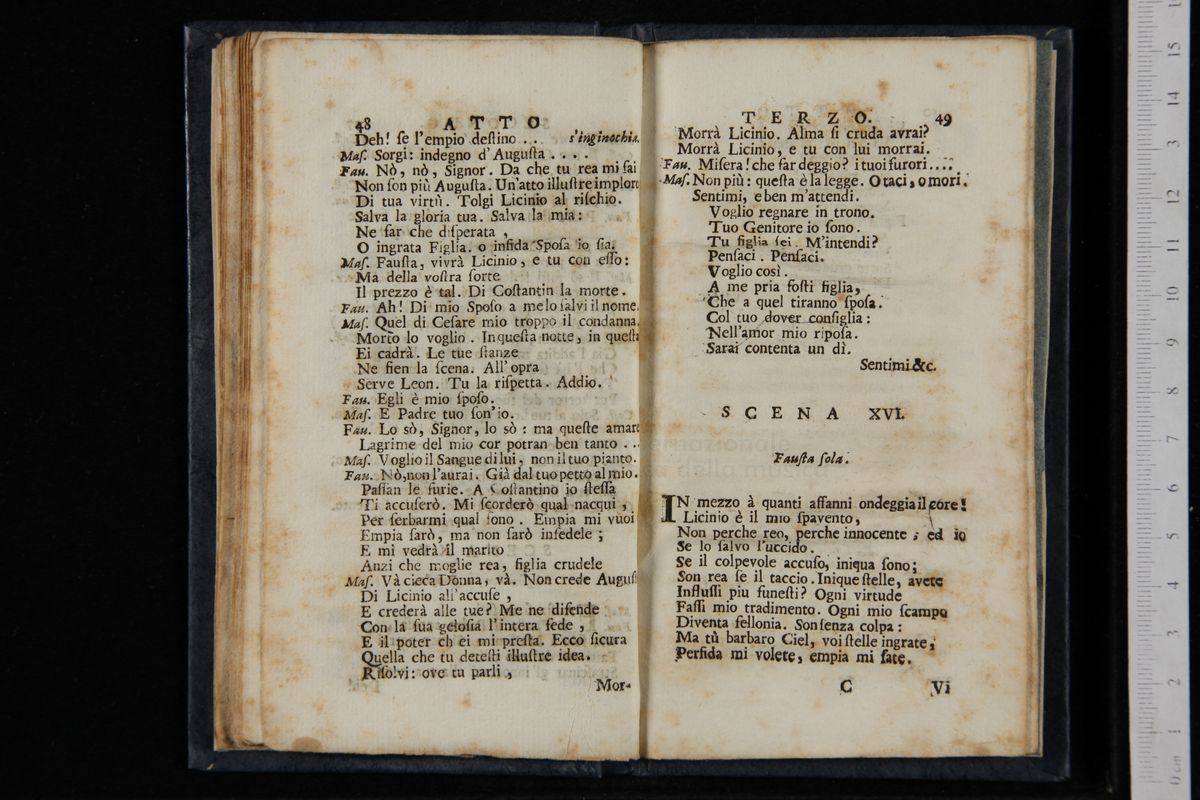 48 ATTO
Deh! ſe l'empio deſtino ... s'inginochia.
Maſ. Sorgi: indegno d'Auguſta ....
Fau. Nò, nò, Signor. Da che tu rea mi fai
Non ſon più Auguſta. Un'atto illuſtre implor
Di tua virtù. Tolgi Licinio al riſchio.
Salva la gloria tua. Salva la mia:
Ne far che diſperata,
O ingrata Figlia. o infida Spoſa io ſia.
Maſ. Fauſta, vivrà Licinio, e tu con eſſo:
Ma della voſtra ſorte
Il prezzo è tal. Di Coſtantin la morte.
Fau. Ah! Di mio Spoſo a me lo ſalvi il nome.
Maſ. Quel di Ceſare mio troppo il condanna.
Morto lo voglio. In queſta notte, in queſt
Ei cadrà. Le tue ſtanze
Ne ſien la ſcena. All'opra
Serve Leon. Tu la riſpetta. Addio.
Fau. Egli è mio ſpoſo.
Maſ. E Padre tuo ſon'io.
Fau. Lo sò, Signor, lo sò: ma queſte amar
Lagrime del mio cor potran ben tanto ...
Maſ. Voglio il Sangue di lui, non il tuo pianto.
Fau. Nò, non l'aurai. Già dal tuo petto al mio.
Paſſan le furie. A Coſtantino io ſteſſa
Ti accuſerò. Mi ſcorderò qual nacqui,
Per ſerbarmi qual ſono. Empia mi vuoi
Empia ſarò, ma non ſarò infedele;
E mi vedrà il marito
Anzi che moglie rea, figlia crudele
Maſ. Và cieca Donna, và. Non crede Auguſt
Di Licinio all'accuſe,
E crederà alle tue? Me ne difende
Con la ſua geloſia l'intera fede,
E il poter ch ei mi preſta. Ecco ſicura
Quella che tu deteſti illuſtre idea.
Riſolvi: ove tu parli,
Mor-
TERZO. 49
Morrà Licinio. Alma ſi cruda avrai?
Morrà Licinio, e tu con lui morrai.
Fau. Miſera! che far deggio? i tuoi furori....
Maſ. Non più: queſta è la legge. O taci, o mori.
Sentimi, e ben m'attendi.
Voglio regnare in trono.
Tuo Genitore io ſono.
Tu figlia ſei. M'intendi?
Penſaci. Penſaci.
Voglio così.
A me pria foſti figlia,
Che a quel tiranno ſpoſa.
Col tuo dover conſiglia:
Nell'amor mio ripoſa.
Sarai contenta un dì.
Sentimi &c.
SCENA XVI.
Fauſta ſola.
IN mezzo à quanti affanni ondeggia il core!
Licinio è il mio ſpavento,
Non perche reo, perche innocente; ed io
Se lo ſalvo l'uccido.
Se il colpevole accuſo, iniqua ſono;
Son rea ſe il taccio. Inique ſtelle, avete
Influſſi piu funeſti? Ogni virtude
Faſſi mio tradimento. Ogni mio ſcampo
Diventa fellonia. Son ſenza colpa:
Ma tù barbaro Ciel, voi ſtelle ingrate,
Perfida mi volete, empia mi fate.
C Vi